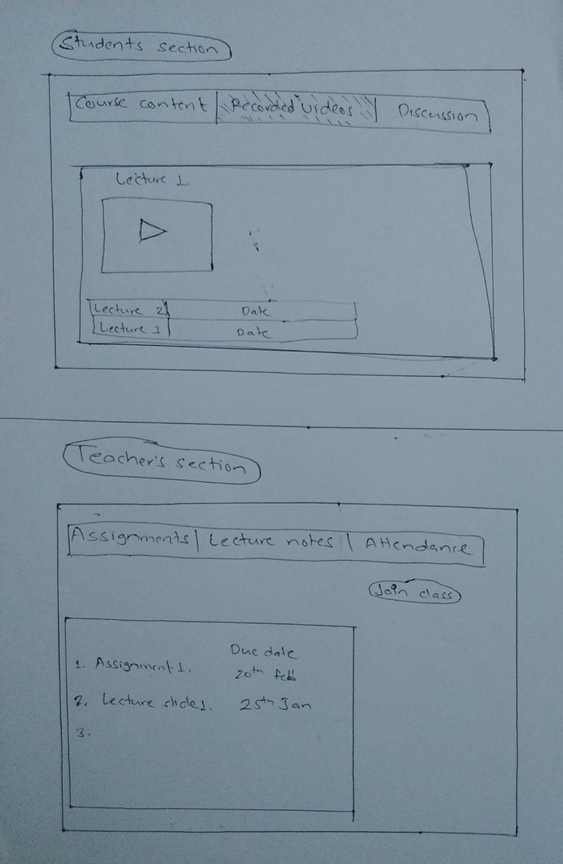 Students section
Course content Recorded videos Discussion
Lecture 1.
Lecture 2 Date
Lecture 3 Date
Teacher's section
Assignments | Lecture notes | Attendance
Join class
Due date
1. Assignment 1. 20th Feb
2. Lecture slide 1. 25th Jan
3.